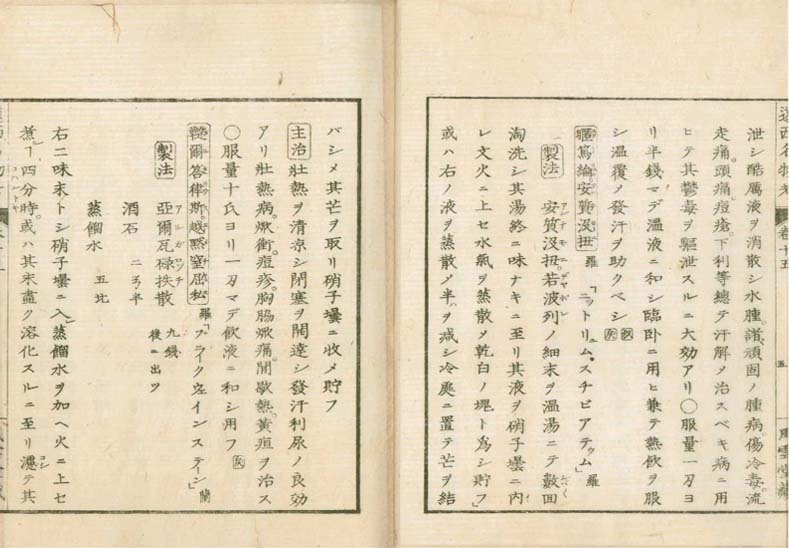 遠西名物考 卷十五 五 風雲堂藏
泄シ酷厲液ヲ消散シ水腫。諸頑固ノ腫病。傷冷毒。流
走痛。頭痛。痘瘡。下利等總テ汗解ノ治スベキ病ニ用
ヒテ其欝毒ヲ驅泄スルニ大効アリ〇服量一刀ヨ
リ半錢マデ温液ニ和シ臨臥ニ用ヒ兼テ熱飲ヲ服
シ温覆メ發汗ヲ助クベシ
暱篤綸安質没扭 羅「ニットリュム。スチビアテゥム」羅
製法 安質没扭。若波列ノ細末ヲ温湯ニテ數囬
淘洗シ其湯終ニ味ナキニ至リ其液ヲ硝子壜ニ内
レ文火ニ上セ水氣ヲ蒸散メ乾白ノ塊ト為シ貯フ」
或ハ右ノ液ヲ蒸散メ半ヲ减シ冷處ニ置テ芒ヲ結
バシメ其芒ヲ取リ硝子壜ニ收メ貯フ
主治 壯熱ヲ清凉シ閉塞ヲ開達シ發汗利尿ノ良効
アリ壯熱病。焮衝。痘疹。胸脇焮痛。間歇熱。黄疸ヲ治ス
〇服量十氏ヨリ一刀マデ飲液ニ和シ用フ
韃爾答律斯。越黙窒屈松 羅「ブラークウェインステーン」蘭
製法 亞爾瓦碌扶散 九錢 後ニ出ツ
酒石 二ヲ半
蒸餾水 五比
右二味末トシ硝子壜ニ入レ蒸餾水ヲ加ヘ火ニ上セ
煮ヿ四分時。或ハ其末盡ク溶化スルニ至リ濾テ其